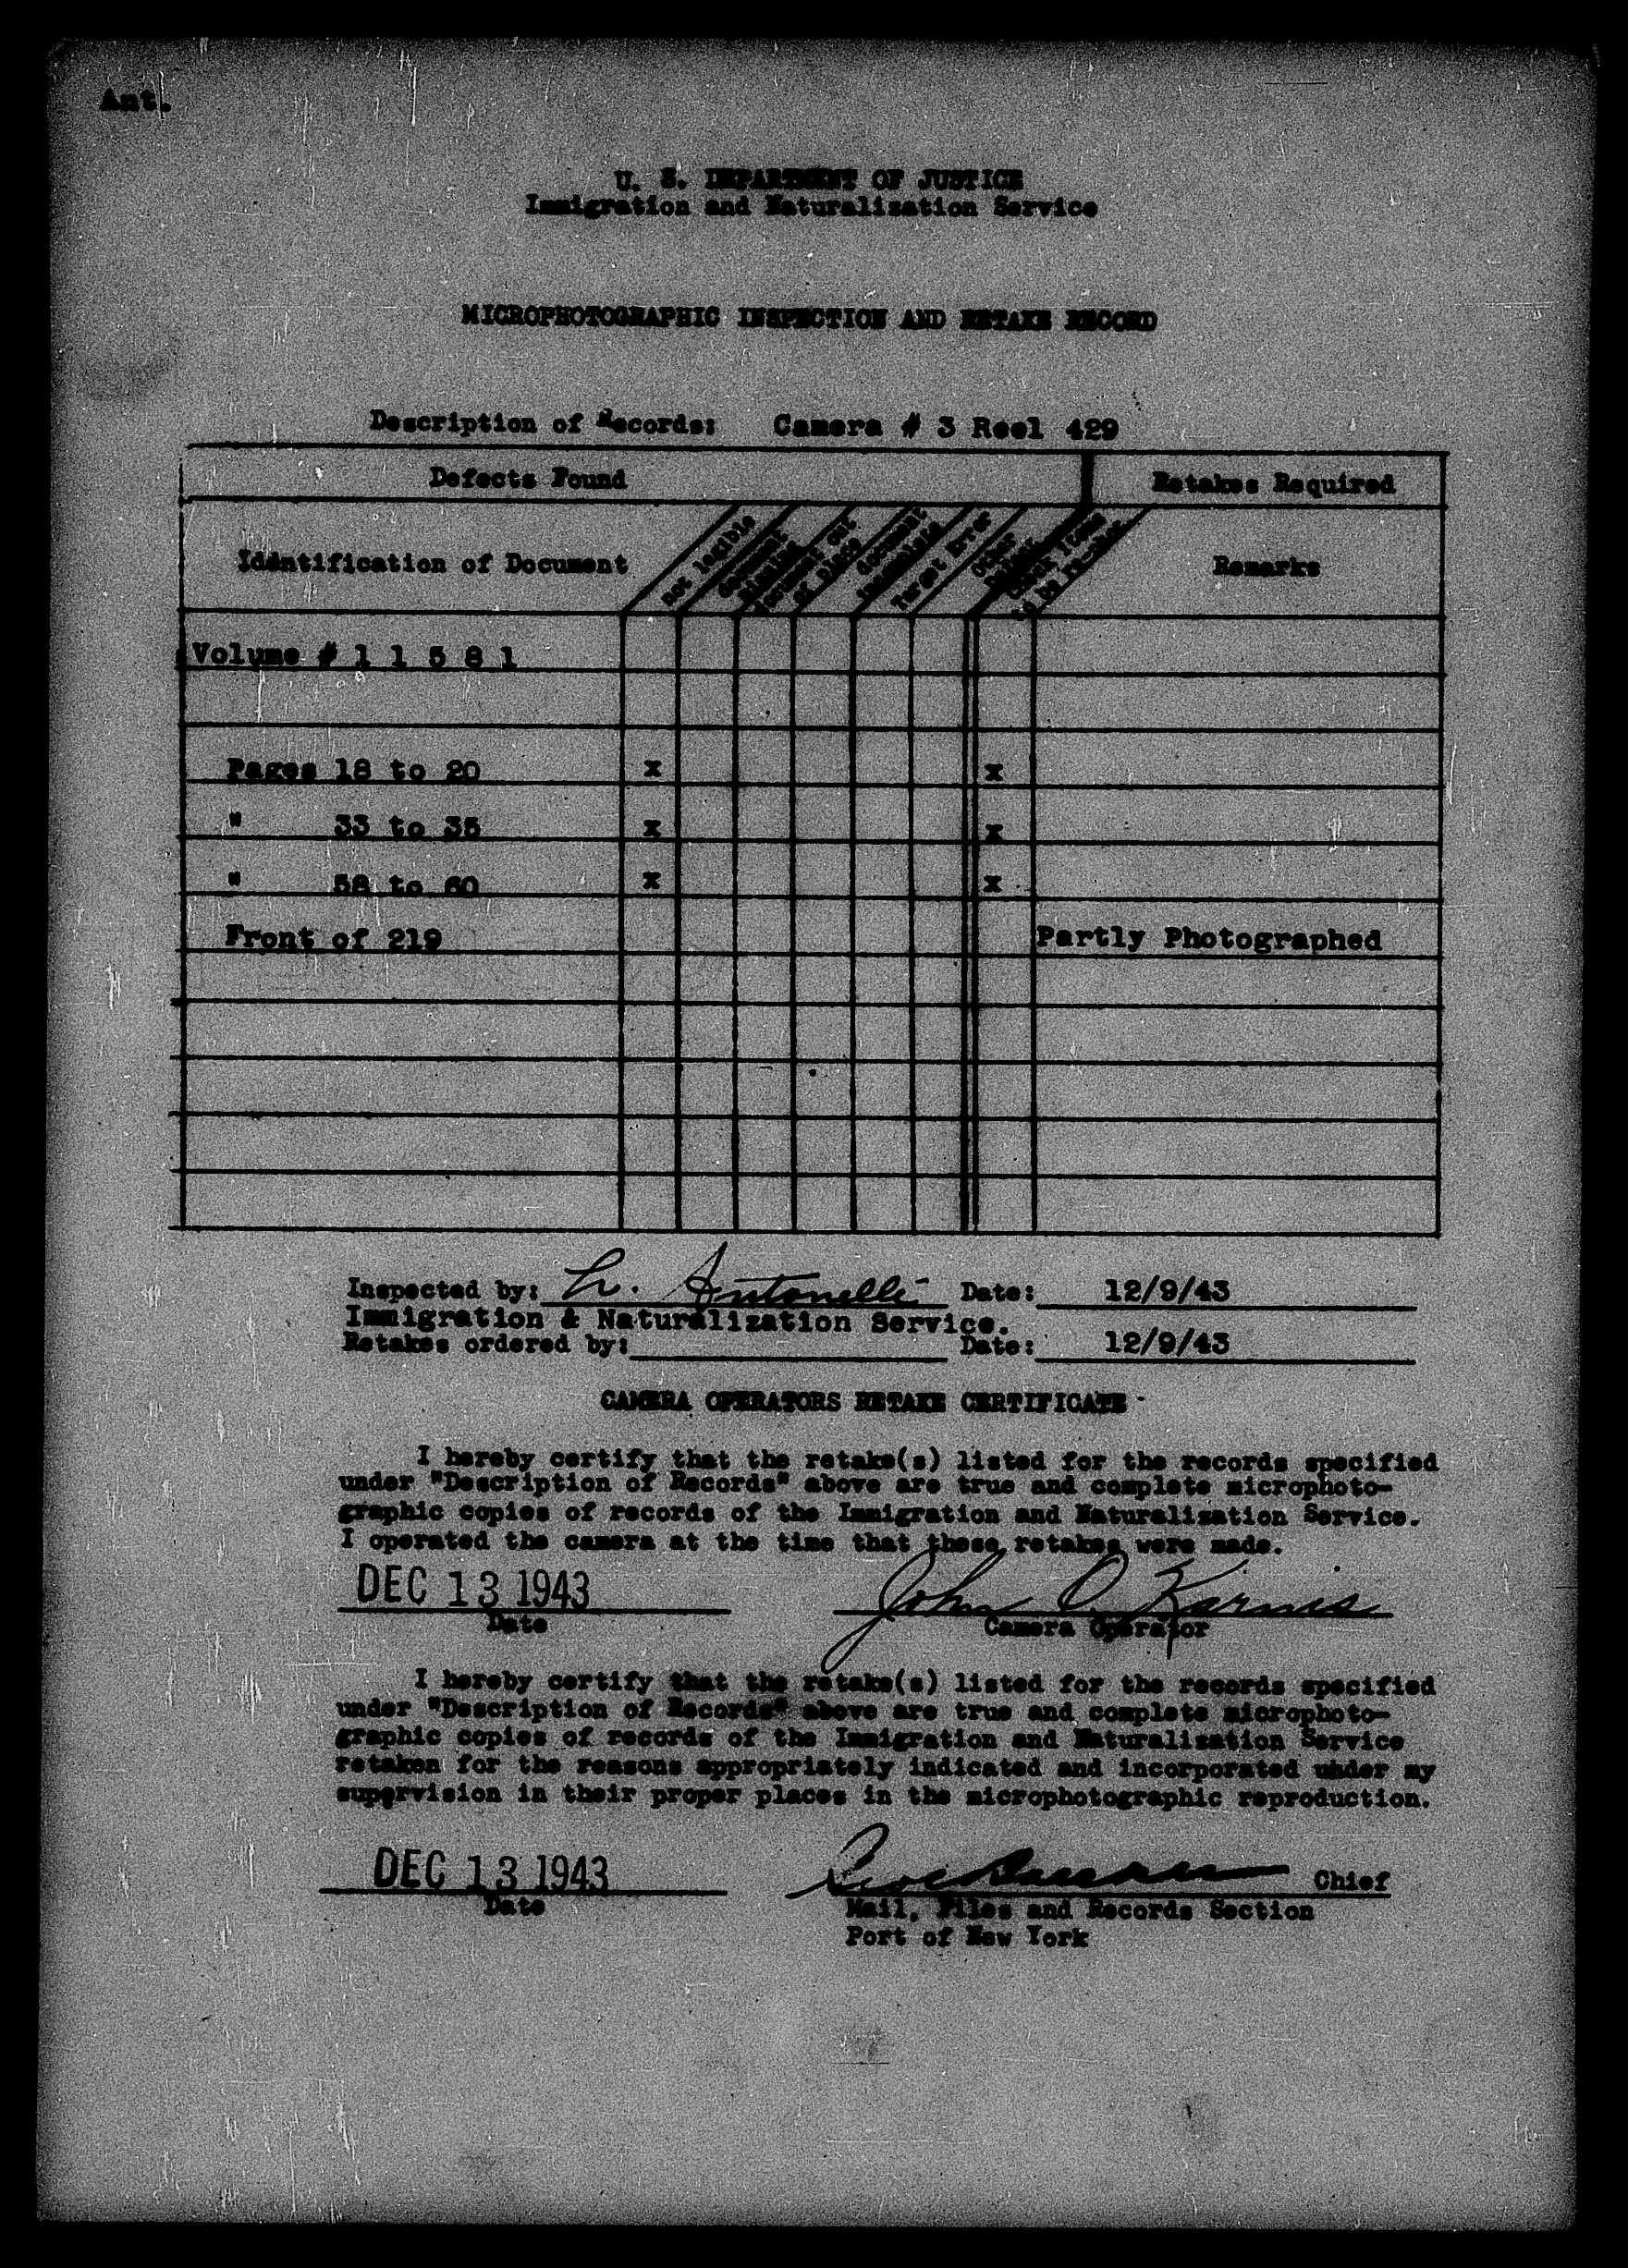 Ant.
U. S. DEPARTMENT OF JUSTICE
Immigration and Naturalization Service
MICROPHOTOGRAPHIC INSPECTION AND RETAKE RECORD
Description of Records: Camera # 3 Reel 429
Defects Found Retakes Required
Identification of Document not legible document missing document out of place document incomplete Target Error Other Defect Remarks
Volume # 1 1 5 8 1
Pages 18 to 20 x x
" 33 to 35 x x
" 58 to 60 x x
Front of 219 Partly Photographed
Inspected by: L. Antonelli Date: 12/9/43
Immigration & Naturalization Service.
Retakes ordered by: Date: 12/9/43
CAMERA OPERATORS RETAKE CERTIFICATE
I hereby certify that the retake(s) listed for the records specified
under "Description of Records" above are true and complete microphoto-
graphic copies of records of the Immigration and Naturalization Service.
I operated the camera at the time that these retakes were made.
DEC 13 1943 John O Karnis
Date Camera Operator
I hereby certify that the retake(s) listed for the records specified
under "Description of Records" above are true and complete microphoto-
graphic copies of records of the Immigration and Naturalization Service
retaken for the reasons appropriately indicated and incorporated under my
supervision in their proper places in the microphotographic reproduction.
DEC 13 1943 Chief
Date Mail, Files and Records Section
Port of New York